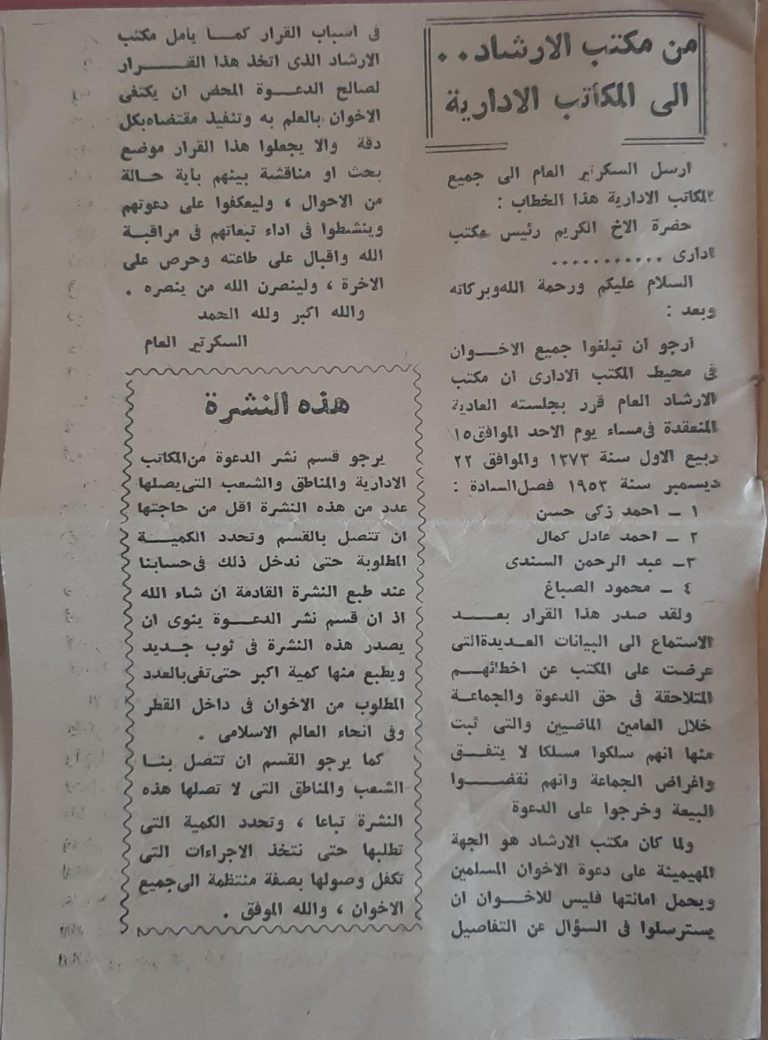 من مكتب الارشاد . .
الى المكاتب الادارية
ارسل السكرتير العام الى جميع
المكاتب الادارية هذا الخطاب :
حضرة الاخ الكريم رئيس مكتب
ادارى ...........
السلام عليكم ورحمة الله وبركاته
وبعد :
ارجو ان تبلغوا جميع الاخــوان
فى محيط المكتب الادارى ان مكتب
الارشاد العام قرر بجلسته العادية
المنعقدة فى مساء يوم الاحد الموافق ١٥
ربيع الاول سنة ١٣٧٣ والموافق ٢٢
ديسمبر سنة ١٩٥٣ فصل السادة :
١ – احمد زكى حسن
٢ – احمد عادل كمال
٣– عبد الرحمن السندى
٤ – محمود الصباغ
ولقد صدر هذا القرار بعــد
الاستماع الى البيانات العديدة التى
عرضت على المكتب عن اخطائهــم
المتلاحقة فى حق الدعوة والجماعة
خلال العامين الماضيين والتى ثبت
منها انهم سلكوا مسلكا لا يتفــق
واغراض الجماعة وانهم نقضــوا
البيعة وخرجوا على الدعوة
ولما كان مكتب الارشاد هو الجهة
المهيمنة على دعوة الاخوان المسلمين
ويحمل امانتها فليس للاخــوان ان
يسترسلوا فى السؤال عن التفاصيل
فى اسباب القرار كمــا يامل مكتب
الارشاد الذى اتخذ هذا القــرار
لصالح الدعــوة المحض ان يكتفى
الاخوان بالعلم به وتنفيذ مقتضاه بكل
دقة والا يجعلوا هذا القرار موضع
بحث او مناقشة بينهم باية حــالة
من الاحوال ، وليعكفوا على دعوتهم
وينشطوا فى اداء تبعاتهم فى مراقبة
الله واقبال على طاعته وحرص على
الاخرة ، ولينصرن الله من ينصره .
والله اكبر ولله الحمد
السكرتير العام
هذه النشرة
يرجو قسم نشر الدعوة من المكاتب
الادارية والمناطق والشعب التى يصلها
عدد من هذه النشرة اقل من حاجتها
ان تتصل بالقسم وتحدد الكميــة
المطلوبة حتى ندخل ذلك فى حسابنا
عند طبع النشرة القادمة ان شاء الله
اذ ان قسم نشر الدعــوة ينوى ان
يصدر هذه النشرة فى ثوب جديد
ويطبع منها كمية اكبر حتى تفى بالعدد
المطلوب من الاخوان فى داخل القطر
وفى انحاء العالم الاسلامى .
كما يرجو القسم ان تتصل بنــا
الشعب والمناطق التى لا تصلها هذه
النشرة تباعا ، وتحدد الكمية التى
تطلبها حتى نتخذ الاجراءات التى
تكفل وصولها بصفة منتظمة الى جميع
الاخوان ، والله الموفق .